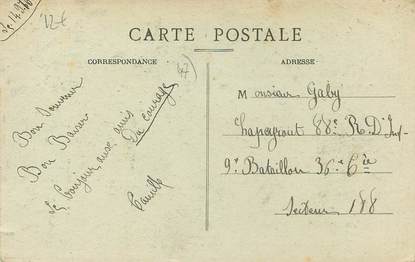 12€
CARTE POSTALE
CORRESPONDANCE
ADRESSE
Bon Souvenir
Bon Baiser
Le Bonjour aux amis
Du courage
Camille
Monsieur Gaby
Lapeyrout 88e R.D'Inf-
9e Bataillon 36e Cie
Secteur 188